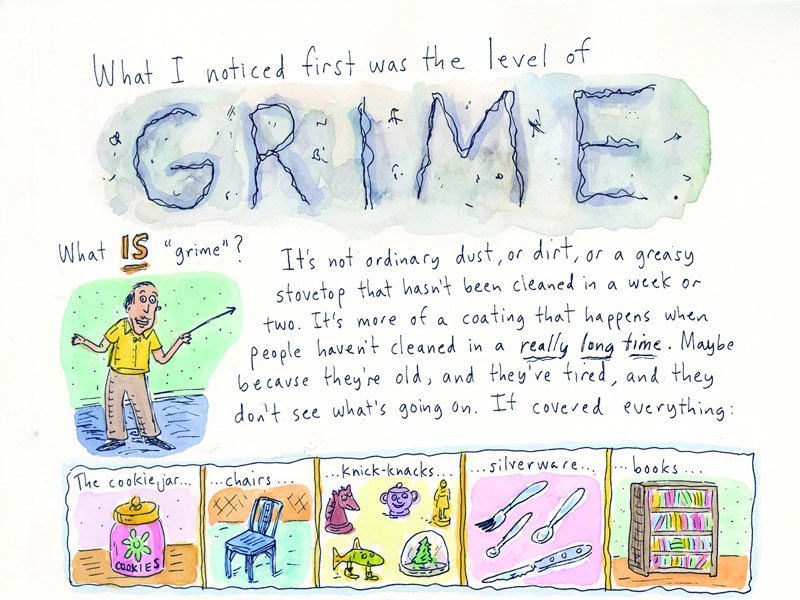 What I noticed first was the level of
GRIME
What IS "grime"?
It's not ordinary dust, or dirt, or a greasy
stovetop that hasn't been cleaned in a week or
two. It's more of a coating that happens when
people haven't cleaned in a really long time. Maybe
because they're old, and they've tired, and they
don't see what's going on. It covered everything:
The cookie jar...
...chairs...
...knick-knacks...
...silverware...
...books...
COOKIES